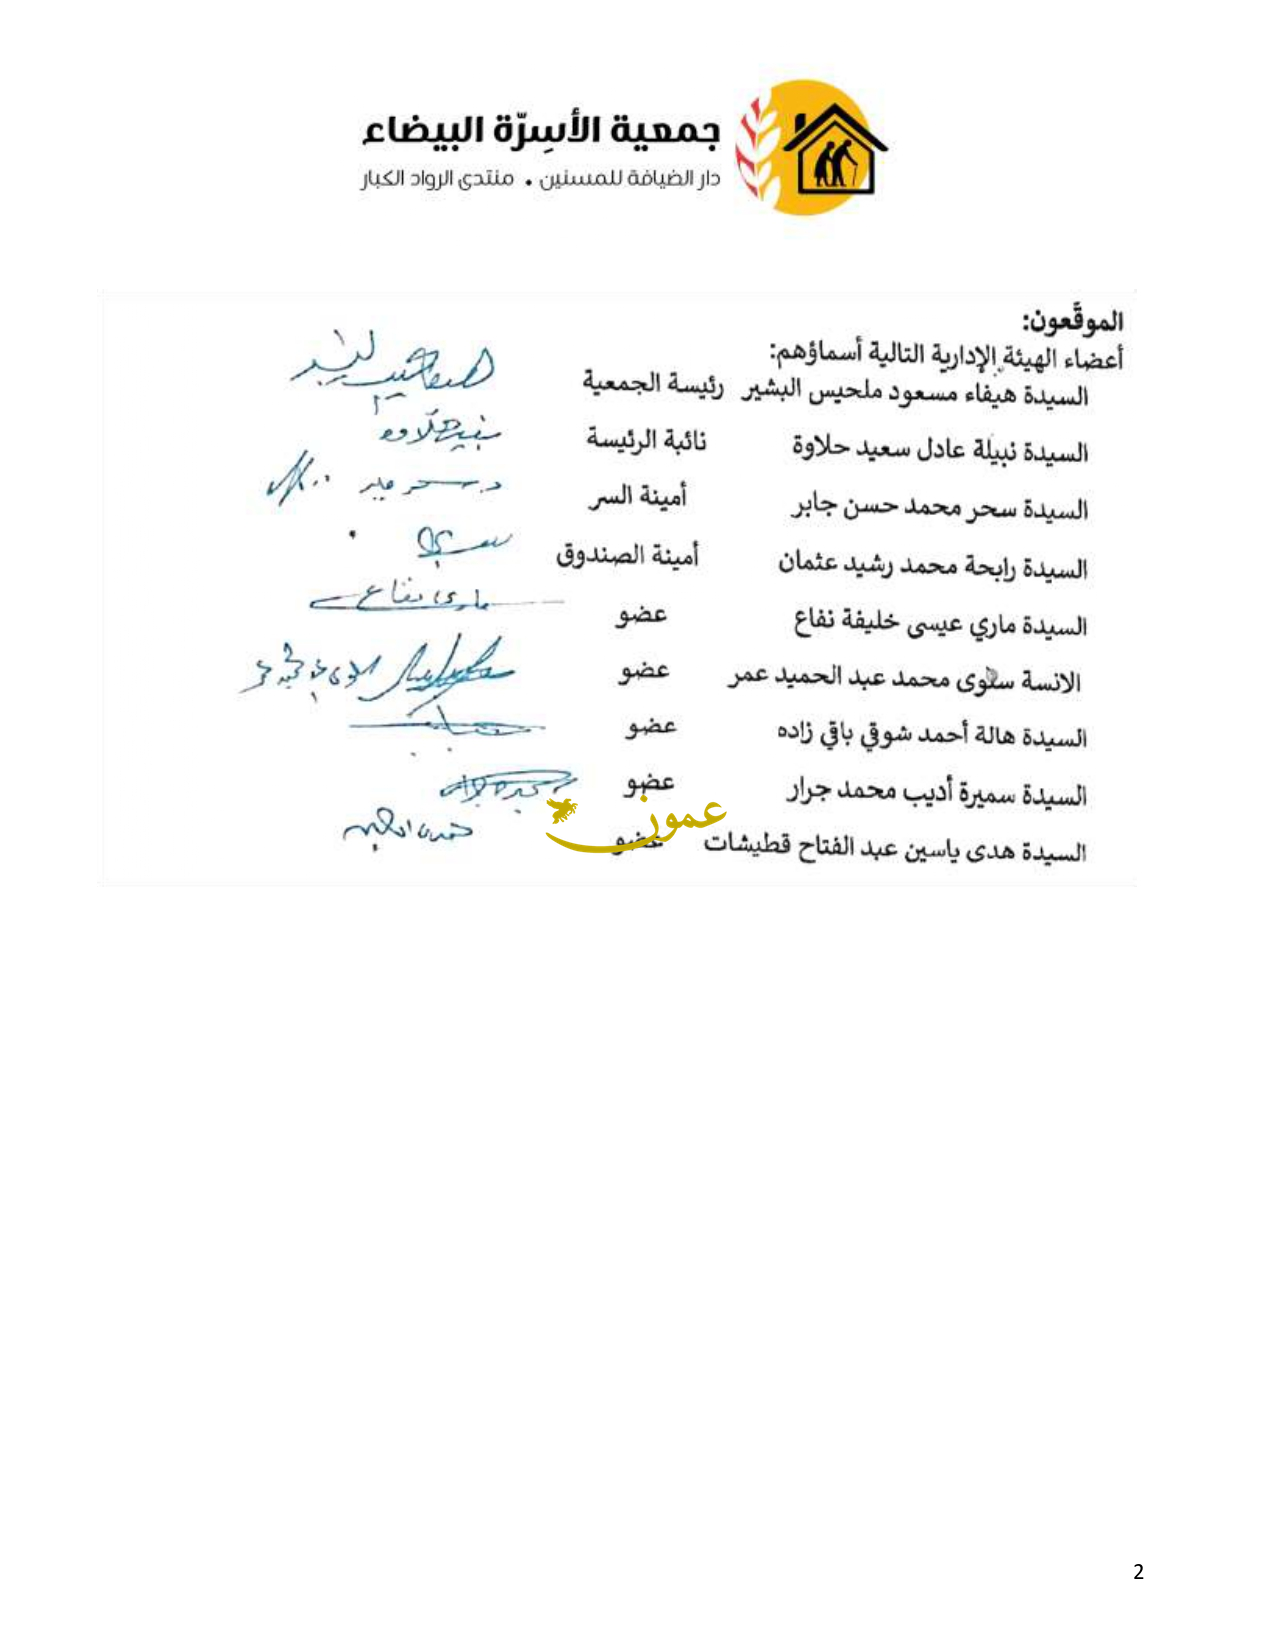 جمعية الأسِرّة البيضاء
دار الضيافة للمسنين . منتدى الرواد الكبار
الموقّعون:
أعضاء الهيئة الإدارية التالية أسماؤهم:
السيدة هيفاء مسعود ملحيس البشير رئيسة الجمعية
السيدة نبيلة عادل سعيد حلاوة نائبة الرئيسة
السيدة سحر محمد حسن جابر أمينة السر
السيدة رابحة محمد رشيد عثمان أمينة الصندوق
السيدة ماري عيسى خليفة نفاع عضو ماري نفاع
الانسة سلوى محمد عبد الحميد عمر عضو
السيدة هالة أحمد شوقي باقي زاده عضو
السيدة سميرة أديب محمد جرار عضو
عمون
السيدة هدى ياسين عبد الفتاح قطيشات عضو
2